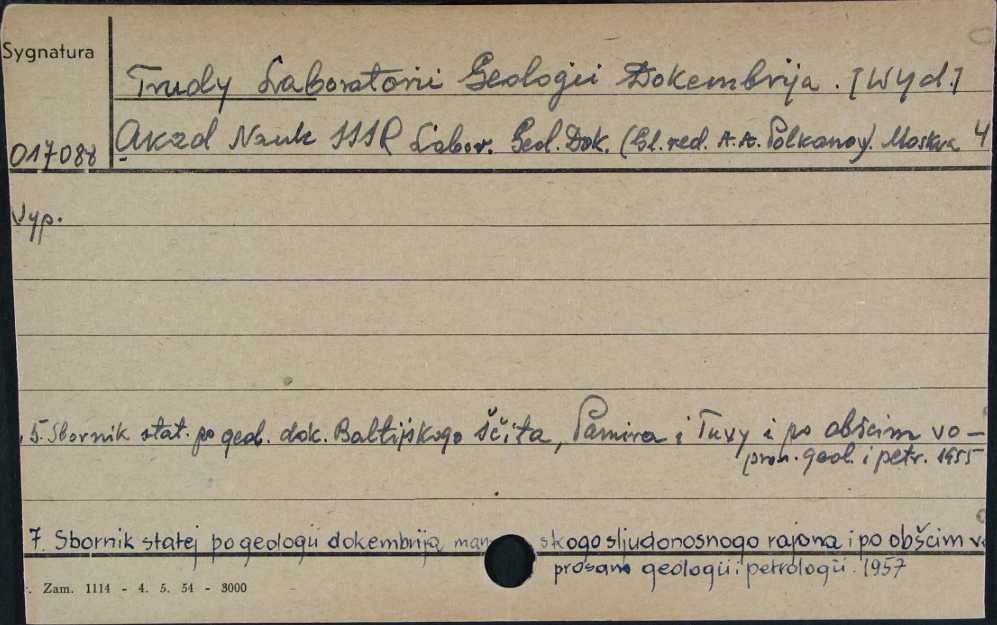 Sygnatura
Trudy Laboratorii Geologii Dokembrija. [Wyd.]
017088 Akad Nauk SSSR Labor. Geol. Dok. (Gl. red. A.A. Polkanov). Moskva 4
Vyp.
5. Sbornik stat. po geol. dok. Baltijskogo ščita, Pamira i Tuvy i po obščim vo-
pros. geol. i petr. 1955
7. Sbornik statej po geologii dokembrija mam skogo sljudonosnogo rajona i po obščim vo
prosam geologii i petrologii. 1957
. Zam. 1114 - 4. 5. 54 - 3000